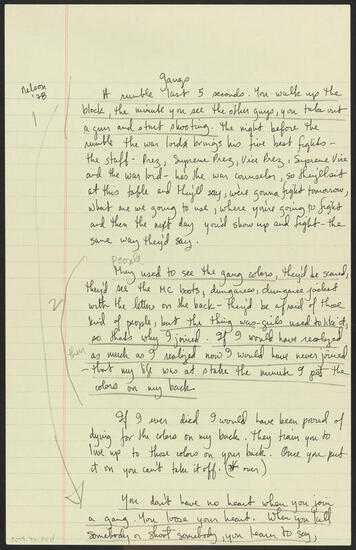 Nelson
'78
gangs
1
A rumble last 5 seconds. You walk up the
block, the minute you see the other guys, you take out
a gun and start shooting. The night before the
rumble the war lords brings his five best fights-
the staff - Prez, Supreme Prez, Vice Prez, Supreme Vice
and the war lord - hes the war counselor, so they'll sit
at this table and they'll say, we're gonna fight tomorrow,
what are we going to use, where you're going to fight
and then the next day you'd show up and fight - the
same way they'd say.
people
2
They used to see the gang colors, they'd be scared,
they'd see the MC boots, dungarees, dungaree jacket
with the letters on the back - they'd be afraid of those
kind of people, but the thing was - girls used to like it,
so thats why I joined. If I would have realized
then
as much as I realized now I would have never joined
- that my life was at stake the minute I put the
colors on my back.
If I ever died I would have been proud of
dying for the colors on my back. They train you to
live up to those colors on your back. Once you put
it on you can't take it off. (over)
You don't have no heart when you join
a gang. You loose your heart. When you kill
somebody or shoot somebody, you learn to say,